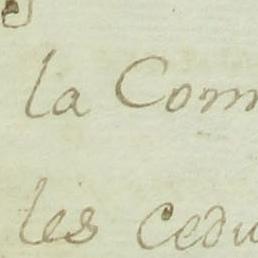 la Com
les cedu